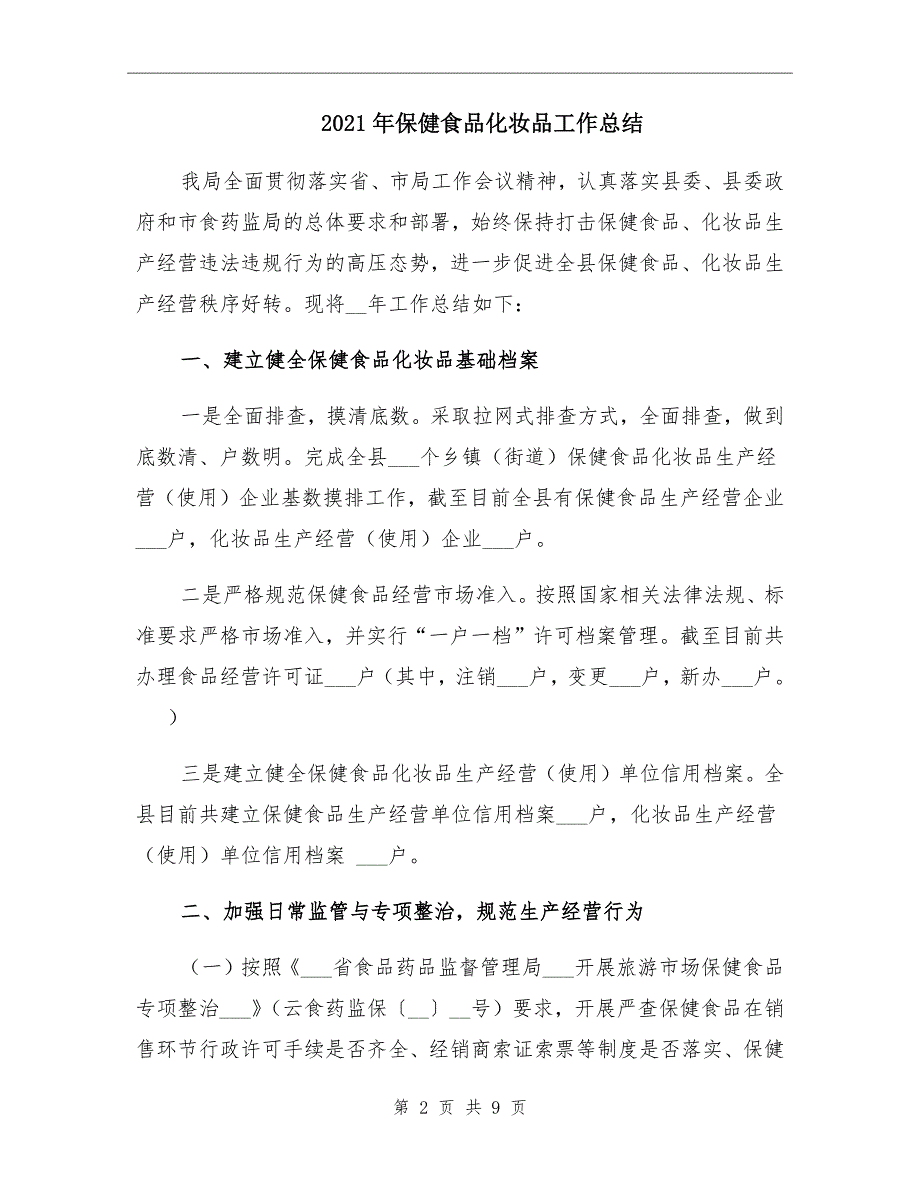 2021年保健食品化妆品工作总结
我局全面贯彻落实省、市局工作会议精神，认真落实县委、县委政
府和市食药监局的总体要求和部署，始终保持打击保健食品、化妆品生
产经营违法违规行为的高压态势，进一步促进全县保健食品、化妆品生
产经营秩序好转。现将__年工作总结如下：
一、建立健全保健食品化妆品基础档案
一是全面排查，摸清底数。采取拉网式排查方式，全面排查，做到
底数清、户数明。完成全县___个乡镇（街道）保健食品化妆品生产经
营（使用）企业基数摸排工作，截至目前全县有保健食品生产经营企业
___户，化妆品生产经营（使用）企业___户。
二是严格规范保健食品经营市场准入。按照国家相关法律法规、标
准要求严格市场准入，并实行“一户一档”许可档案管理。截至目前共
办理食品经营许可证___户（其中，注销___户，变更___户，新办___户。
）
三是建立健全保健食品化妆品生产经营（使用）单位信用档案。全
县目前共建立保健食品生产经营单位信用档案___户，化妆品生产经营
（使用）单位信用档案 ___户。
二、加强日常监管与专项整治，规范生产经营行为
（一）按照《___省食品药品监督管理局___开展旅游市场保健食品
专项整治___》（云食药监保〔__〕__号）要求，开展严查保健食品在销
售环节行政许可手续是否齐全、经销商索证索票等制度是否落实、保健
第 2 页 共 9 页